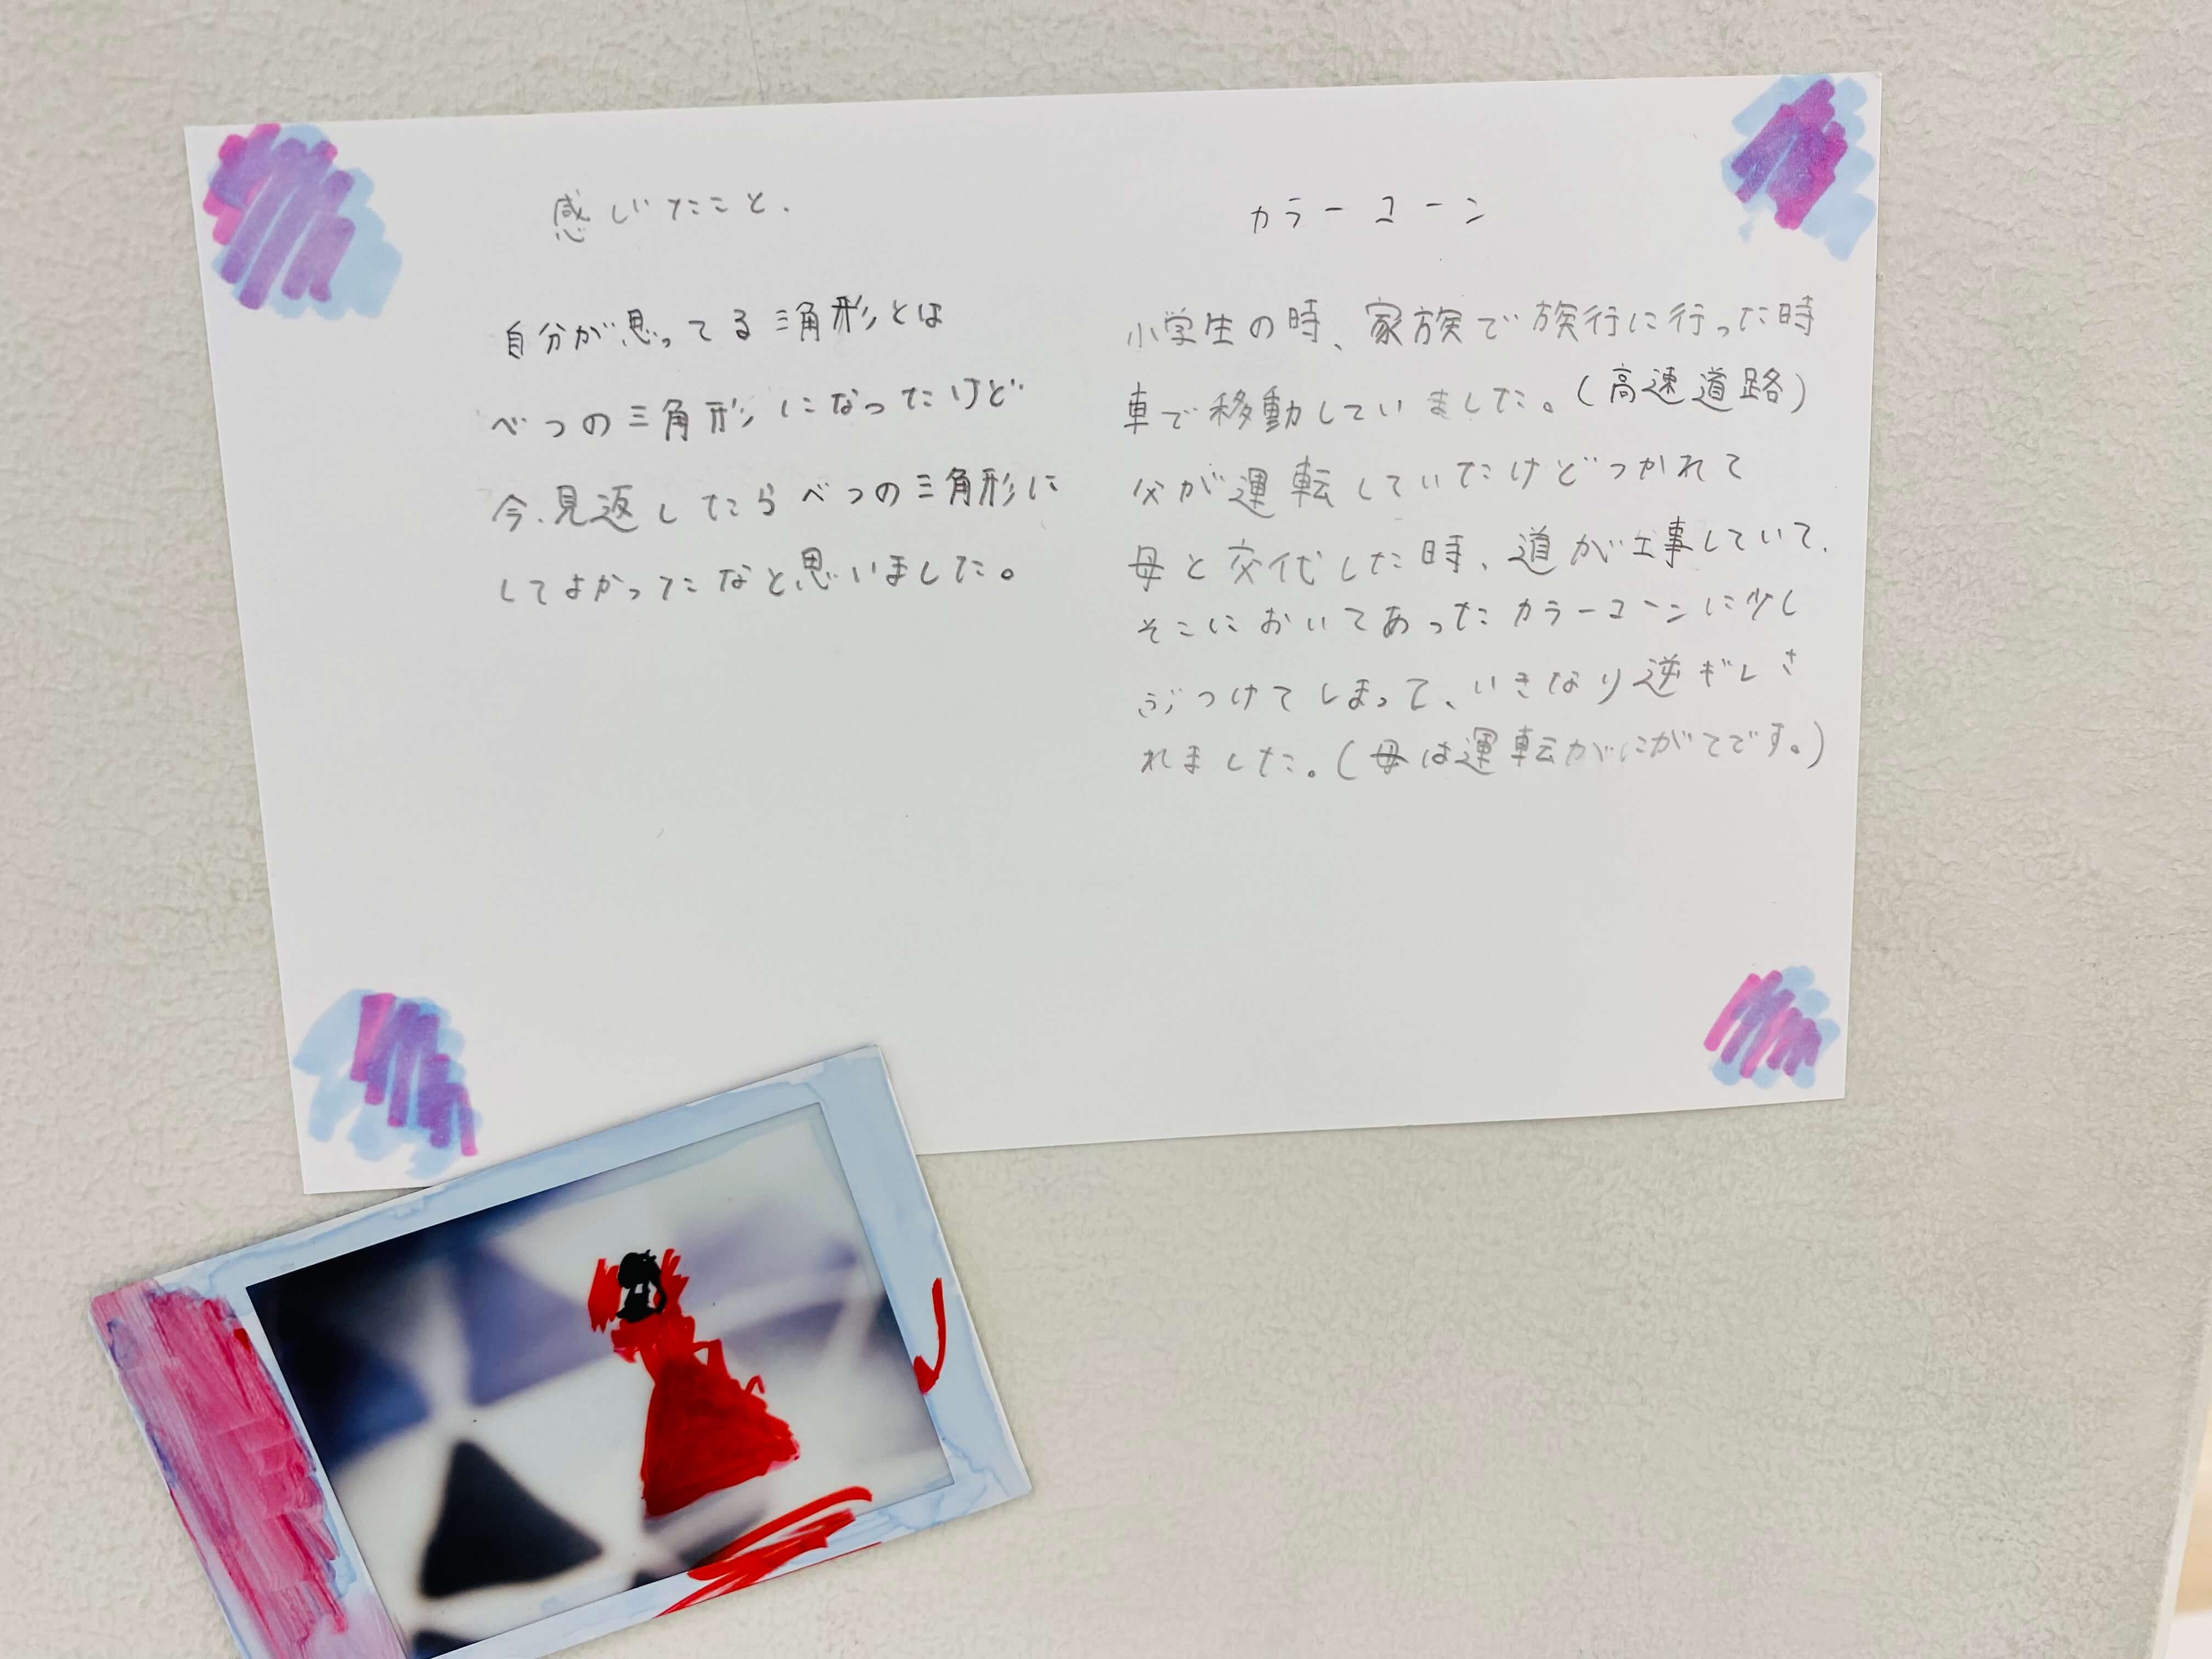 感じたこと.
自分が思ってる三角形とは
べつの三角形になったけど
今、見返したらべつの三角形に
してよかったなと思いました。
カラーコーン
小学生の時、家族で旅行に行った時
車で移動していました。(高速道路)
父が運転していたけどつかれて
母と交代した時、道が工事していて、
そこにおいてあったカラーコーンに少し
ぶつけてしまって、いきなり逆ギレさ
れました。(母は運転がにがてです。)